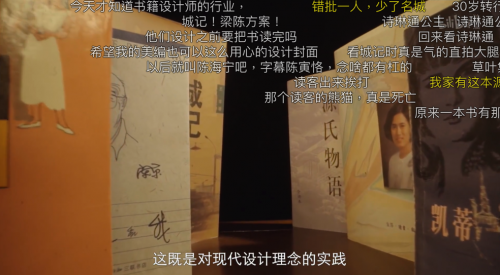 "今天才知道书籍设计师的行业，
错批一人，少了名城
30岁转行
城记！梁陈方案！
诗琳通公主
诗琳通公
他们设计之前要把书读完吗
回来看诗琳通
希望我的美编也可以这么用心的设计封面
看城记时真是气的直拍大腿
以后就叫陈海宁吧，字幕陈寅恪，念啥都有杠的
草叶集
读客出来挨打
我家有这本源
那个读客的熊猫，真是死亡
原来一本书有那
城记
源氏物语
凯蒂
这既是对现代设计理念的实践